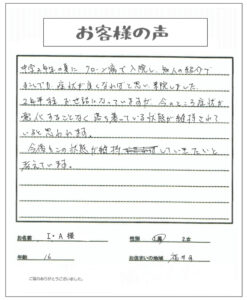 お客様の声
中学2年生の夏に クローン病で入院し、知人の紹介で
症状が良くなればと思い来院しました。
2年半程お世話になっていますが、今のところ症状が
悪化することなく落ち着いている状態が維持されて
いると思われます。
今後もこの状態が維持していきたいと
考えています。
お名前 I・A 様 性別 1 男 2 女
年齢 16 お住まいの地域
ご協力ありがとうございました。